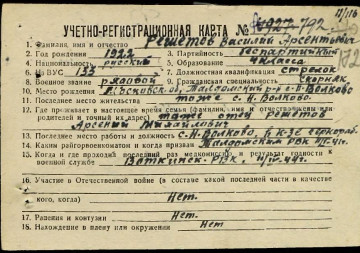 УЧЕТНО-РЕГИСТРАЦИОННАЯ КАРТА №
1. Фамилия, имя и отчество Решетов Василий Арсентьевич
2. Год рождения 1922 3. Партийность беспартийный
4. Национальность русский 5. Образование 4 класса
6. № ВУС 133 7. Должностная квалификация стрелок
8. Военное звание рядовой 9. Гражданская специальность скорняк
10. Место рождения Московской об. Талдомский р-н с-н-Волково
11. Последнее место жительства тоже с. н. Волково.
12. Где проживает в настоящее время семья (фамилия, имя и отчество жены или
родителей и точный их адрес) там же отец Решетов
Арсений Михайлович
13. Последнее место работы и должность с. н. Волково, к-з
14. Каким райгорвоенкоматом и когда призван Талдомским РВК
15. Когда и где проходил последний раз медкомиссию и результат годности к
военной службе Воткинск РВК.
16. Участие в Отечественной войне (в составе какой последней части в качестве
кого, когда) Нет.
17. Ранения и контузии Нет.
18. Нахождение в плену или окружении Нет